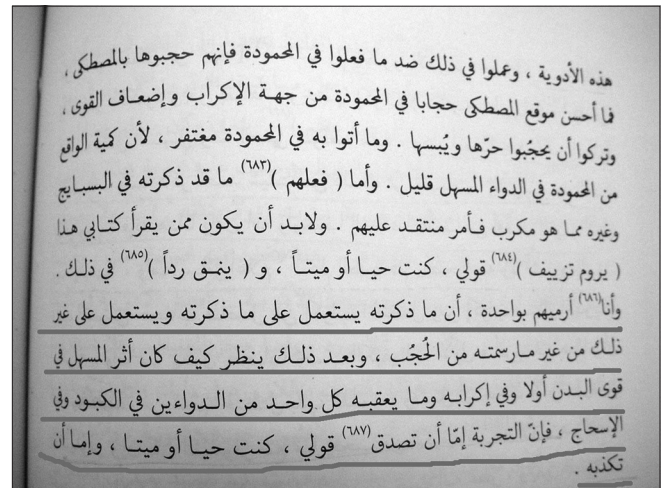 هذه الأدوية ، وعملوا في ذلك ضد ما فعلوا في المحمودة فإنهم حجبوها بالمصطكى ،
فما أحسن موقع المصطكى حجابا في المحمودة من جهة الإكراب وإضعاف القوى ،
وتركوا أن يحجُبوا حرّها ويُبسها . وما أتوا به في المحمودة مغتفر ، لأن كمية الواقع
من المحمودة في الدواء المسهل قليل . وأما ( فعلهم )(٦٨٣) ما قد ذكرته في البسبايج
وغيره مما هو مكرب فأمر منتقد عليهم . ولابد أن يكون ممن يقرأ كتابي هذا
( يروم تزييف )(٦٨٤) قولي ، كنت حيا أو ميتاً ، و ( ينمق رداً )(٦٨٥) في ذلك .
وأنا(٦٨٦) أرميهم بواحدة ، أن ما ذكرته يستعمل على ما ذكرته ويستعمل على غير
ذلك من غير مارسمته من الحُجُب ، وبعد ذلك ينظر كيف كان أثر المسهل في
قوى البدن أولا وفي إكرابه وما يعقبه كل واحد من الدواءين في الكبود وفي
الإسحاج ، فإنّ التجربة إمّا أن تصدق(٦٨٧) قولي ، كنت حيا أو ميتا ، وإما أن
تكذبه .